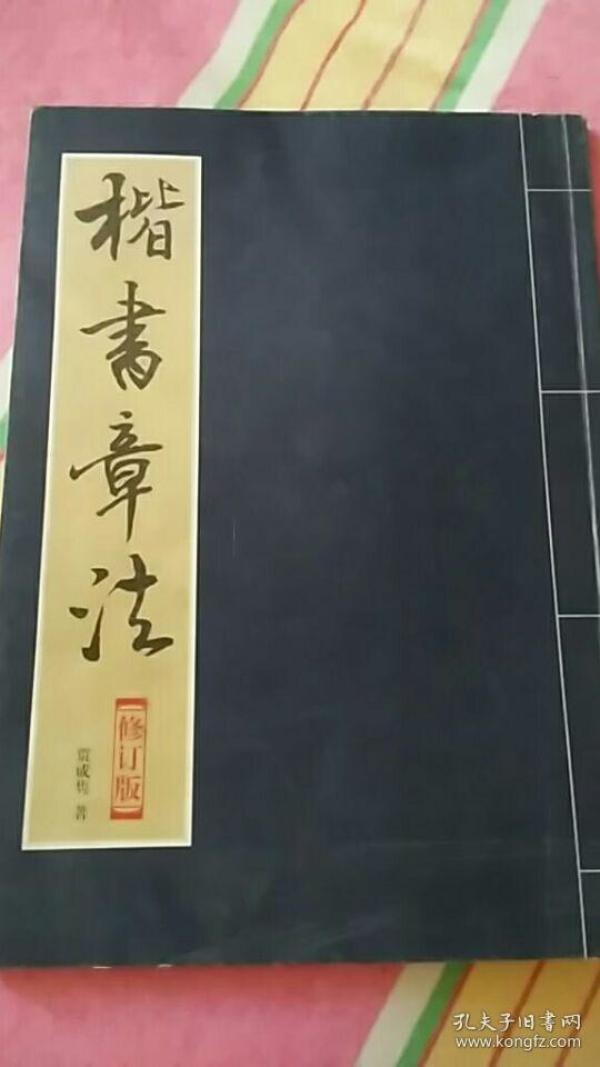 楷書章法
【修订版】
贾成隽 著
孔夫子旧書网
www.kongfz.com